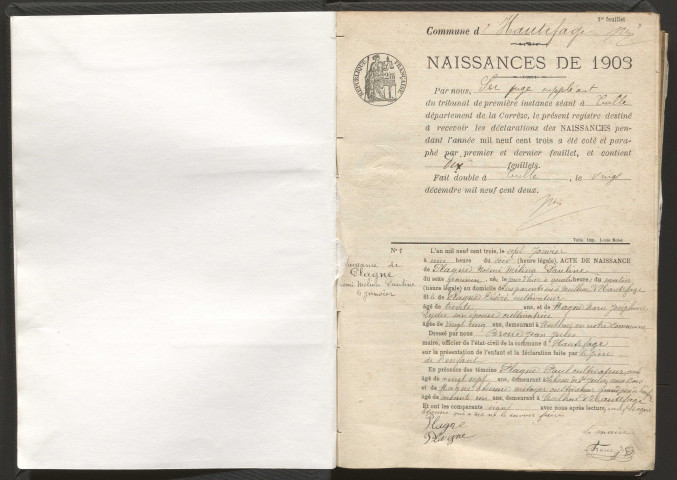 1er feuillet
Commune d' Hautefage
RÉPUBLIQUE FRANÇAISE
NAISSANCES DE 1903
Par nous, 1er juge suppléant
du tribunal de première instance séant à Tulle
département de la Corrèze, le présent registre destiné
à recevoir les déclarations des NAISSANCES pen-
dant l'année mil neuf cent trois a été coté et para-
phé par premier et dernier feuillet, et contient
Dix feuillets.
Fait double à Tulle, le vingt
décembre mil neuf cent deux.
Tulle, Imp. Louis Moles
N° 1
naissance de
Plagne
Noémi Mélina Pauline
6 janvier
L'an mil neuf cent trois, le sept janvier
à une heure du soir (heure légale) ACTE DE NAISSANCE
de Plagne Noémi Mélina Pauline
du sexe féminin, né, le jour d'hier à heure, du matin
(heure légale) au domicile de ses parents d'Hautefage
fil de Plagne cultivateur
âgé de trente ans, et de Plagne Marie Joséphine
son épouse cultivatrice
âgée de vingt cinq ans, demeurant en notre commune
Dressé par nous Jean Jules
maire, officier de l'état-civil de la commune d'Hautefage
sur la présentation de l'enfant et la déclaration faite par le père
de l'enfant
En présence des témoins Plagne Paul cultivateur
âgé de vingt sept ans, demeurant à
et de cultivateur
âgé de ans, demeurant à d'Hautefage
Et ont les comparants signé avec nous après lecture,
Plagne
Plagne
Le maire